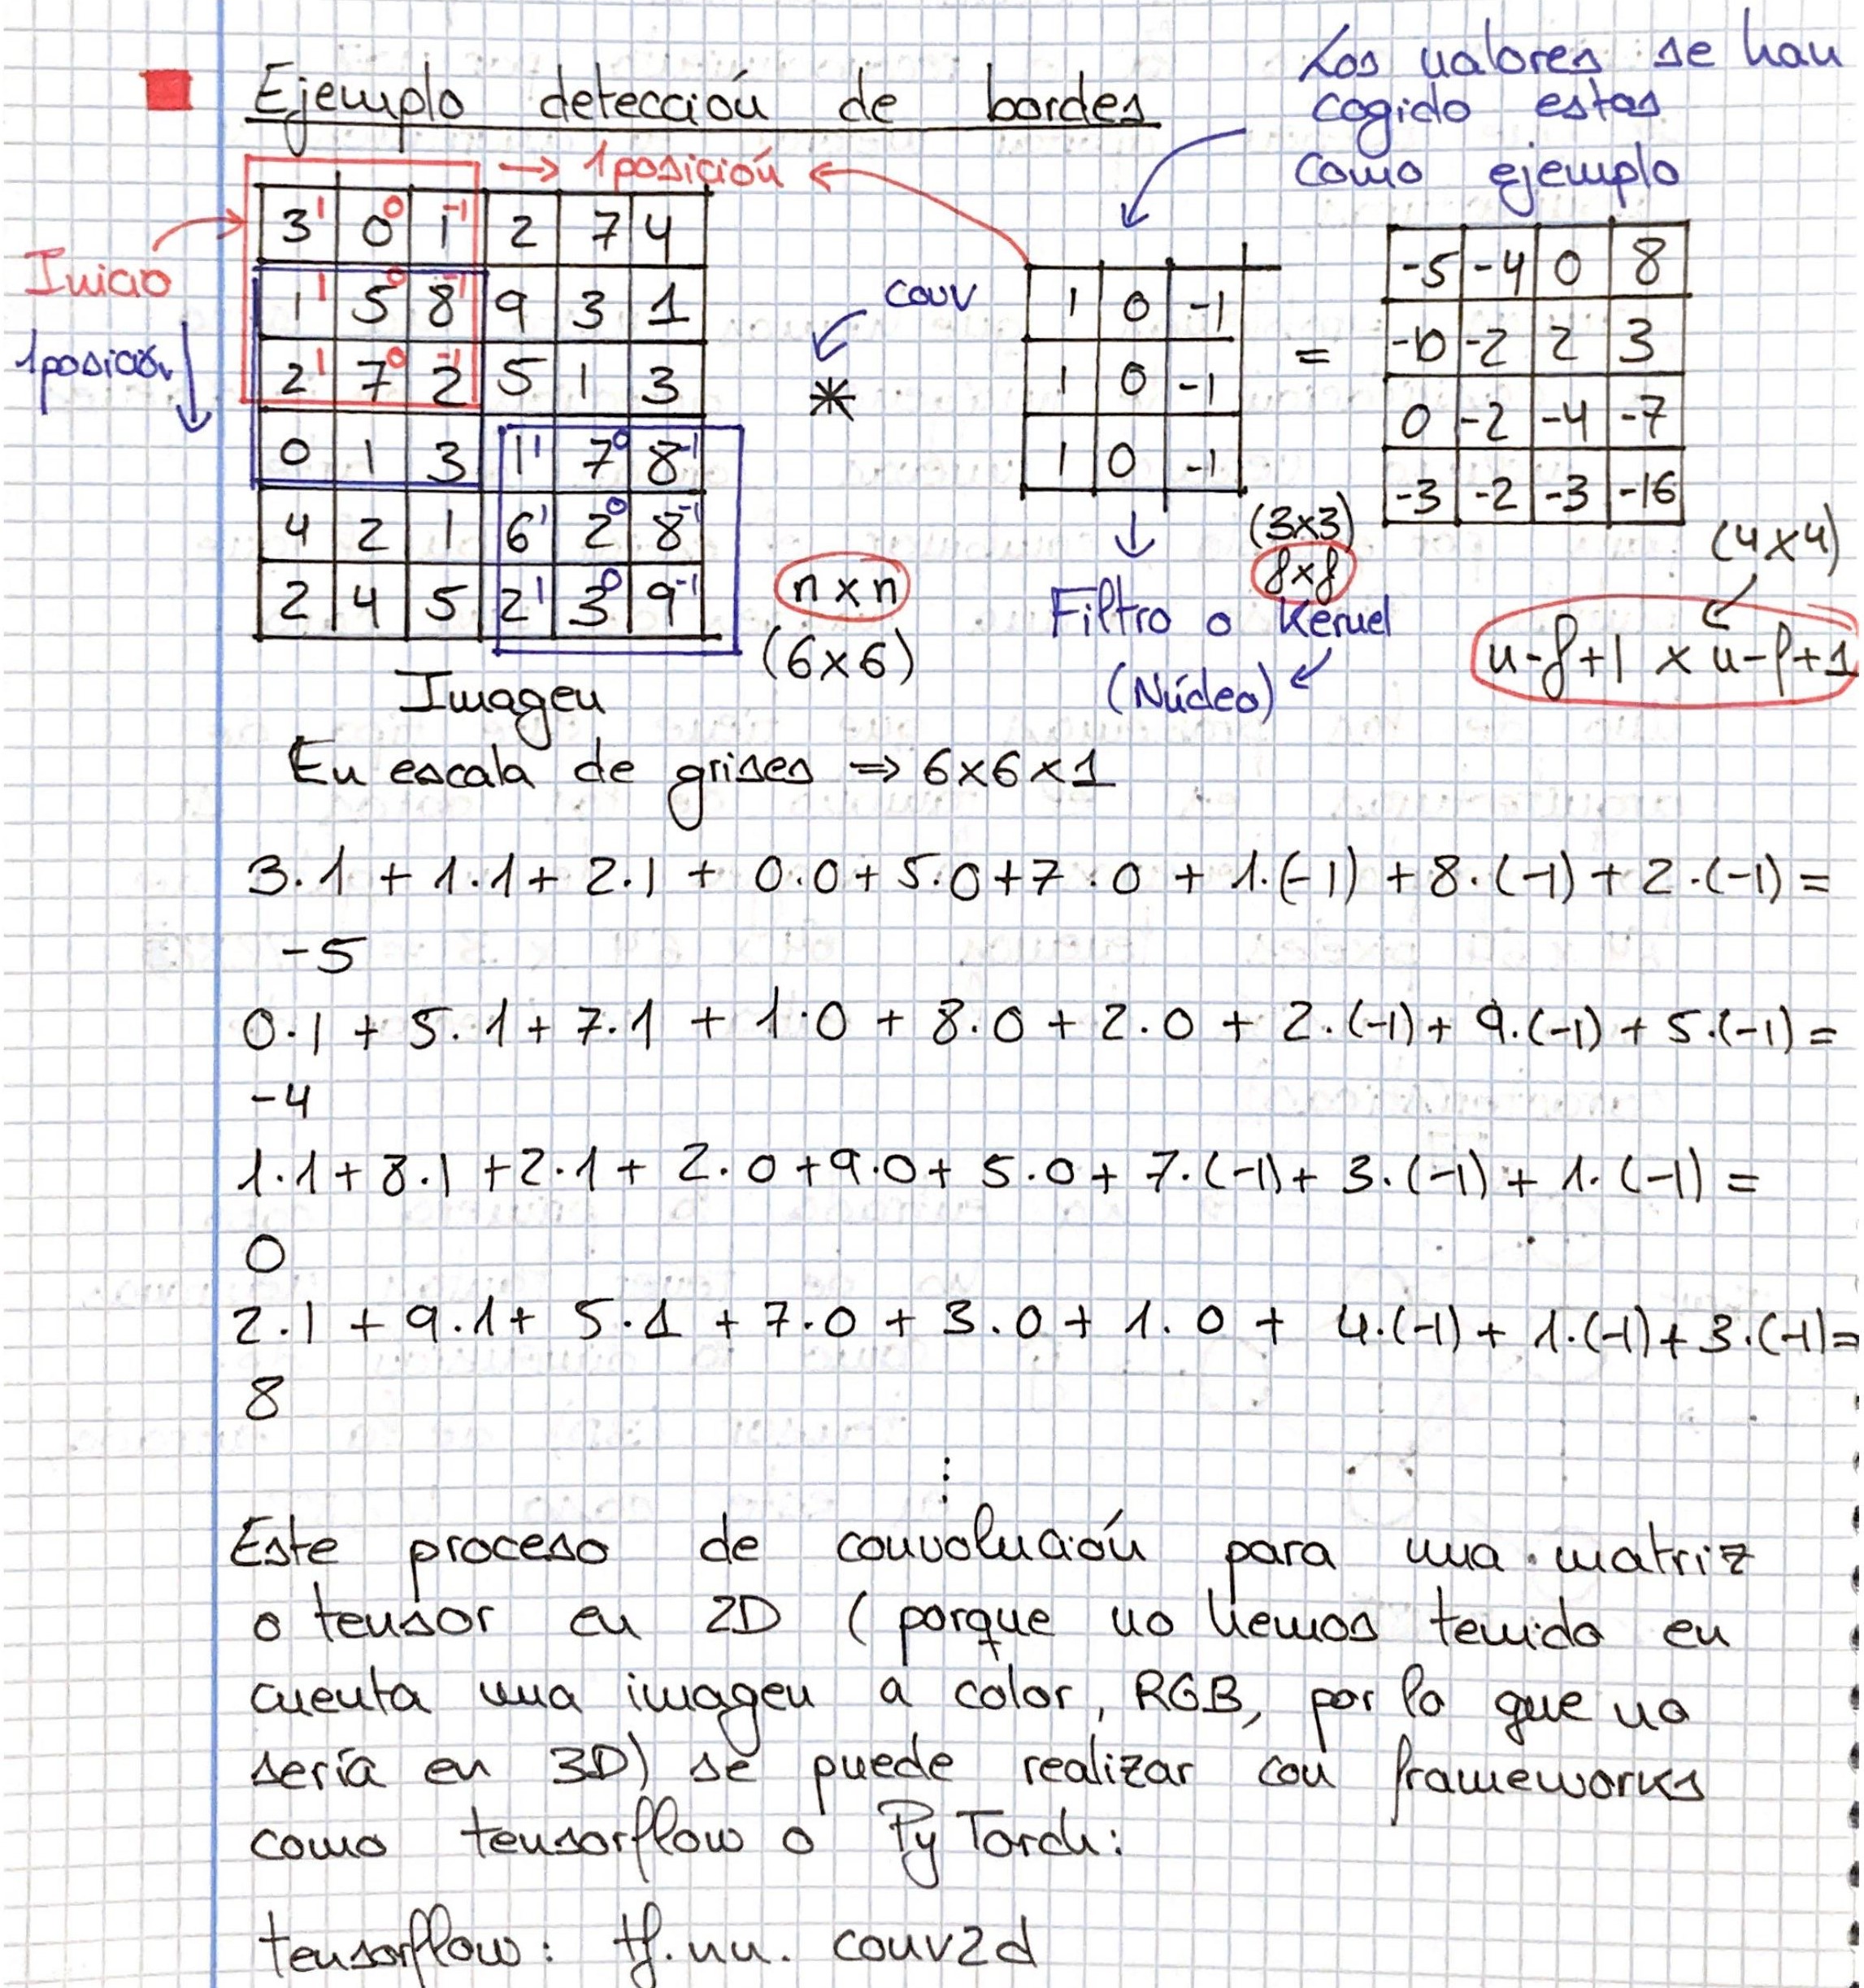 Ejemplo detección de bordes
Los valores se han
cogido estos
como ejemplo
→ 1 posición
Inicio
1 posición
3¹ 0⁰ 1⁻¹ 2 7 4
1¹ 5⁰ 8⁻¹ 9 3 1
2¹ 7⁰ 2⁻¹ 5 1 3
0 1 3 1¹ 7⁰ 8⁻¹
4 2 1 6¹ 2⁰ 8⁻¹
2 4 5 2¹ 3⁰ 9⁻¹
n x n
(6x6)
Imagen
conv
*
1 0 -1
1 0 -1
1 0 -1
(3x3)
f x f
Filtro o Kernel
(Núcleo)
=
-5 -4 0 8
-10 -2 2 3
0 -2 -4 -7
-3 -2 -3 -16
(4x4)
n-f+1 x n-f+1
En escala de grises ⇒ 6x6x1
3·1 + 1·1 + 2·1 + 0·0 + 5·0 + 7·0 + 1·(-1) + 8·(-1) + 2·(-1) =
-5
0·1 + 5·1 + 7·1 + 1·0 + 8·0 + 2·0 + 2·(-1) + 9·(-1) + 5·(-1) =
-4
1·1 + 8·1 + 2·1 + 2·0 + 9·0 + 5·0 + 7·(-1) + 3·(-1) + 1·(-1) =
0
2·1 + 9·1 + 5·1 + 7·0 + 3·0 + 1·0 + 4·(-1) + 1·(-1) + 3·(-1) =
8
⋮
Este proceso de convolución para una matriz
o tensor en 2D (porque no hemos tenido en
cuenta una imagen a color, RGB, por lo que no
sería en 3D) se puede realizar con frameworks
como tensorflow o PyTorch:
tensorflow: tf.nn.conv2d